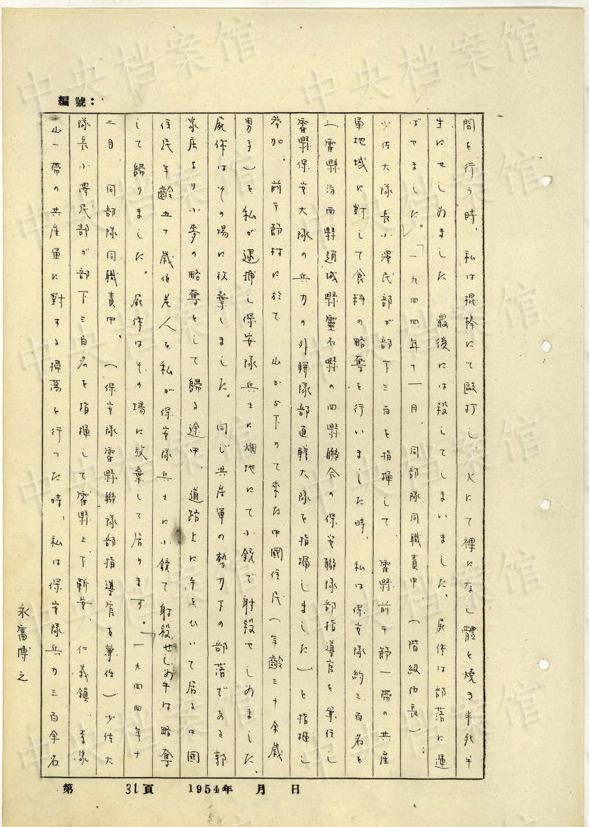 中央档案馆
編號：
問を行う時、私は棍棒にて毆打し火にて裸になし體を焼き半死半
生にせしめました 最後には殺してしまいました。屍体は部落に運
ばせました。「一九四四年十一月、同部隊同職責中、(階級伍長)
少佐大隊長小澤民部が部下三百を指揮して 霍縣前干節一帯の共産
軍地域に対して食料の略奪を行いました時、私は保安隊約三百名を
(霍縣汾西縣趙城縣靈石縣の四縣聯合の保安聯隊部指導官を兼任し
霍縣保安大隊の兵力の外聯隊部直轄大隊を指揮しました)を指揮し
参加、前干節村に於て 山から下りて来た中國住民(年齢三十余歳
男子)を私が逮捕し保安隊兵士に畑地にて小銃で射殺せしめました、
屍体はその場に放棄しました。同じ共産軍の勢力下の部落である部
家庄より小麦の略奪をして帰る途中、道路上に牛をひいて居る中國
住民年齢五十歳位老人を私が保安隊兵士に小銃で射殺せしめ牛は略奪
して帰りました。屍体はその場に放棄して居ります。」「一九四四年十
二月 同部隊同職責中、(保安隊霍縣聯隊部指導官を兼任)少佐大
隊長小澤民部が部下三百名を指揮して霍縣上下靳安、仁義鎮
山一帯の共産軍に対する掃蕩を行った時、私は保安隊兵力三百余名
永富博之
第 31頁 1954年 月 日